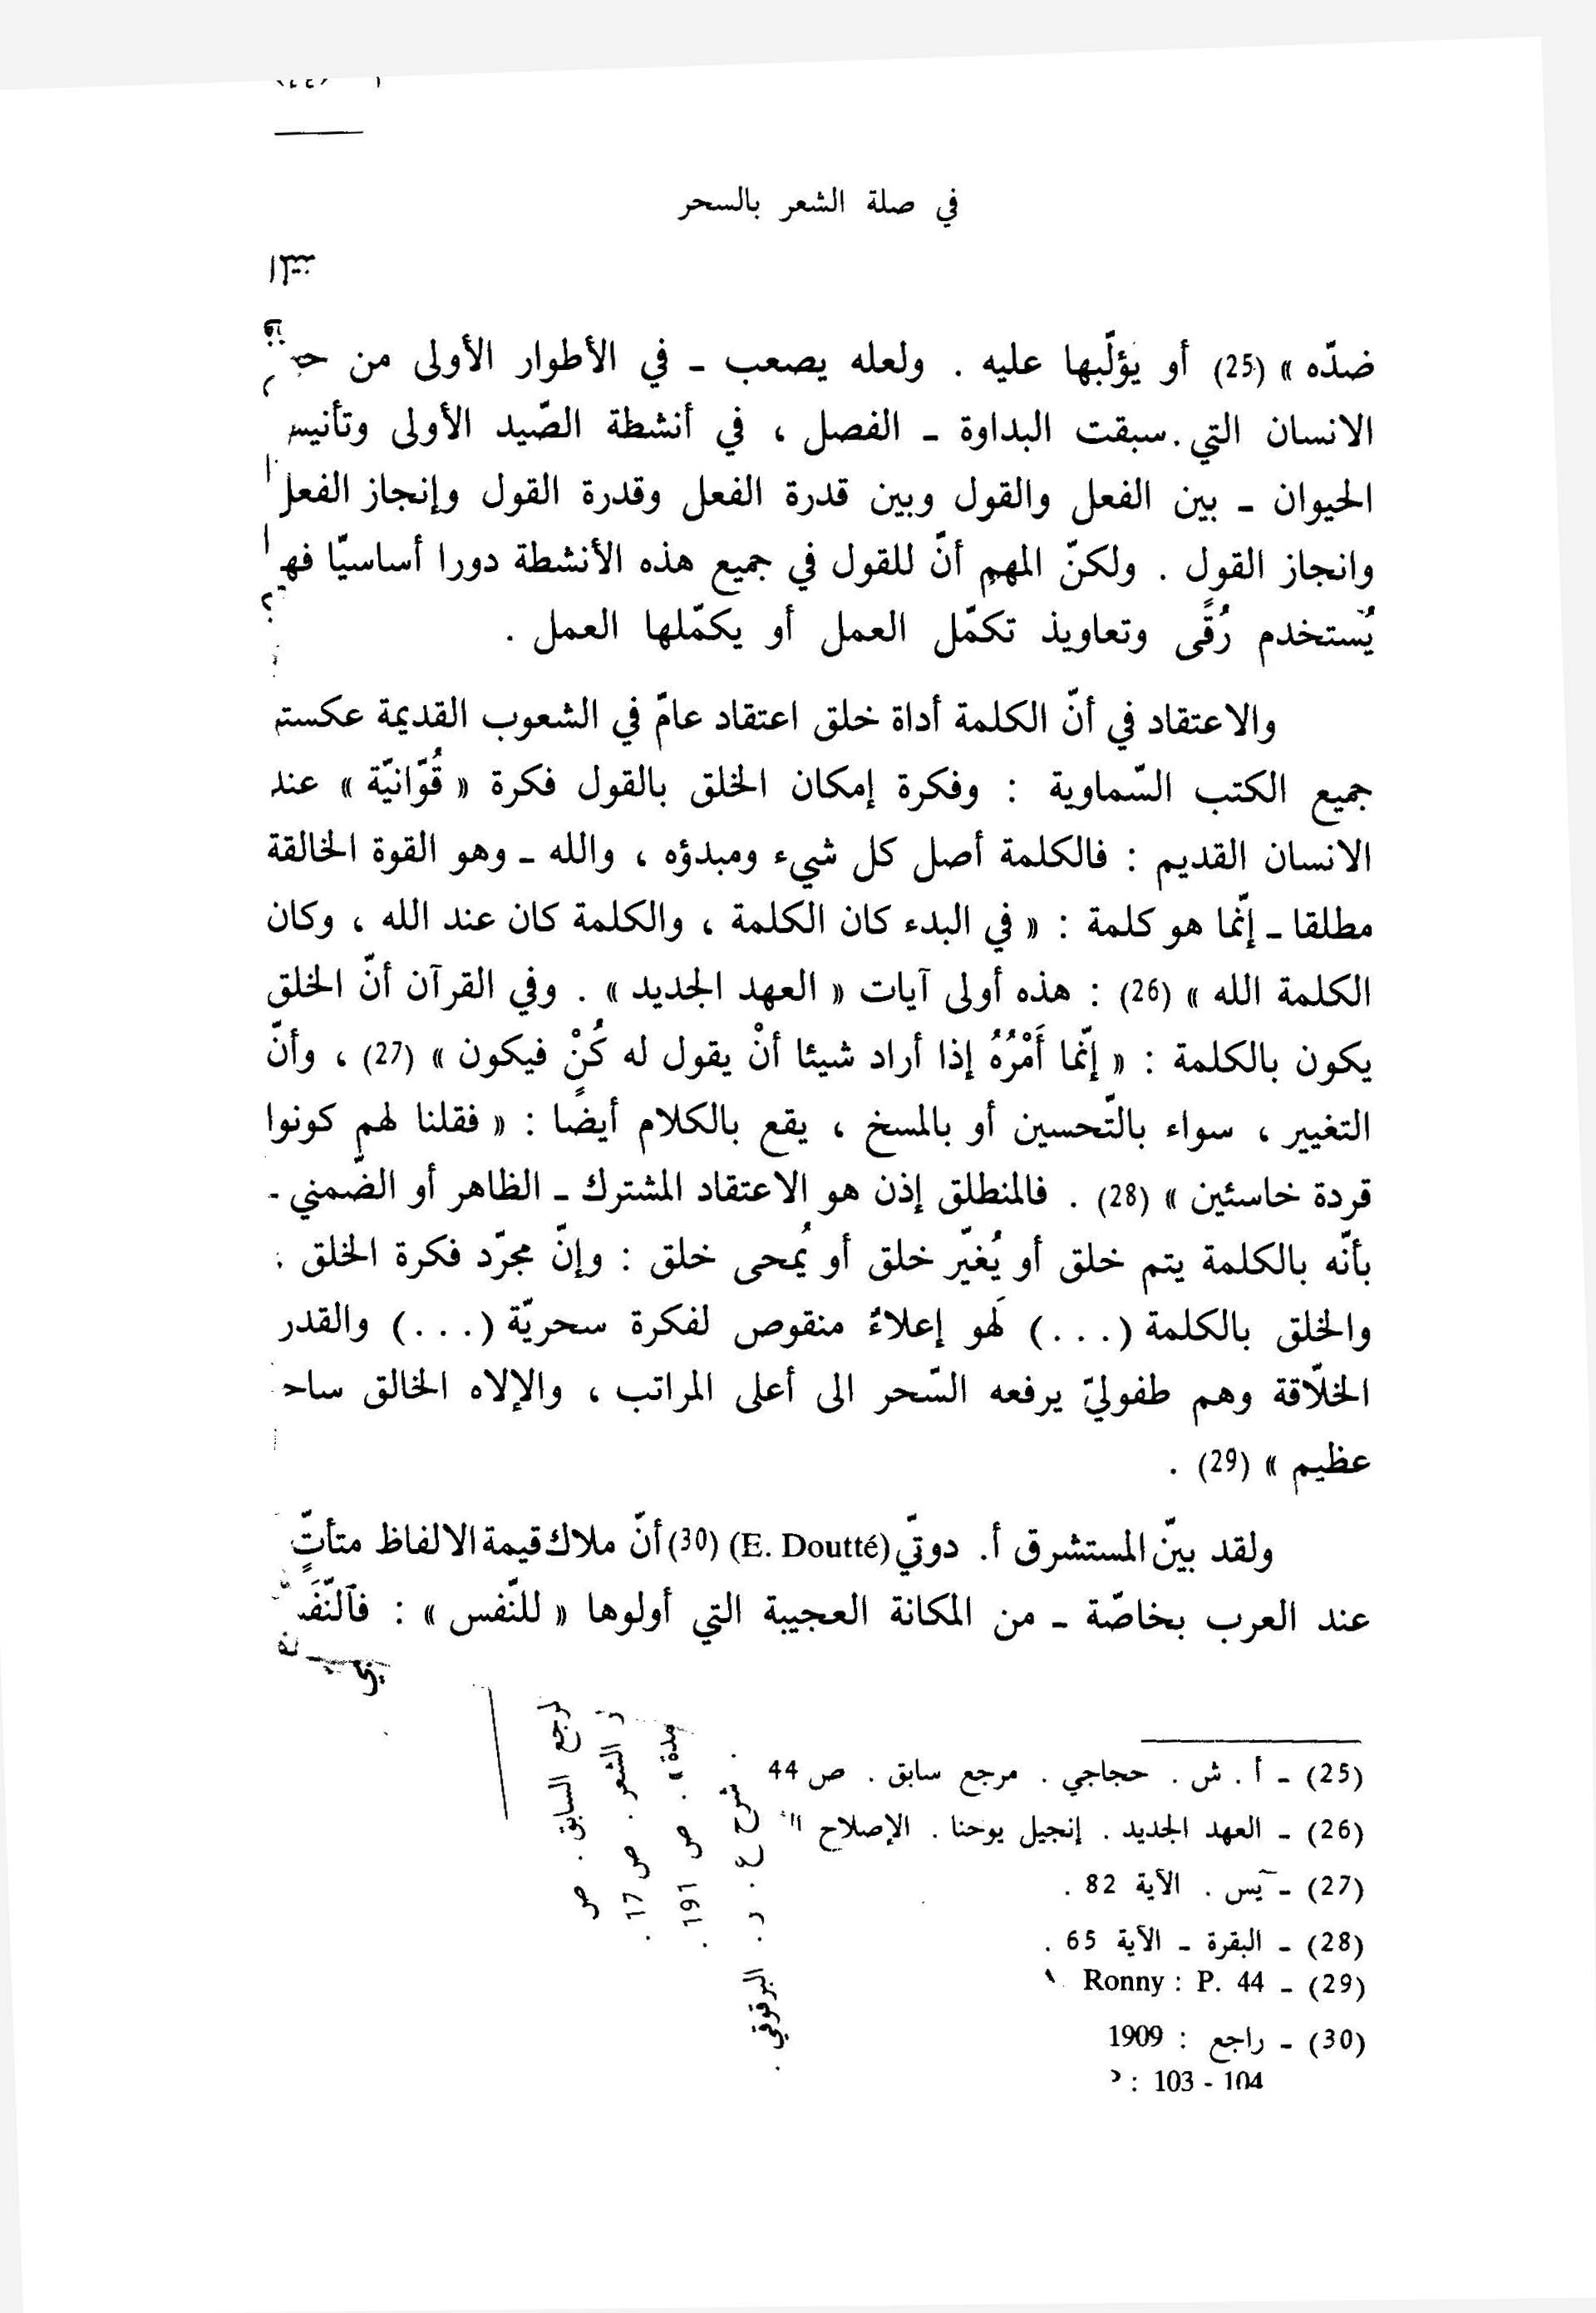 في صلة الشعر بالسحر
ضدّه » (25) أو يؤلّبها عليه . ولعله يصعب ـ في الأطوار الأولى من
الانسان التي سبقت البداوة ـ الفصل ، في أنشطة الصّيد الأولى وتأنيس
الحيوان ـ بين الفعل والقول وبين قدرة الفعل وقدرة القول وإنجاز الفعل
وانجاز القول . ولكنّ المهم أنّ للقول في جميع هذه الأنشطة دورا أساسيّا
يُستخدم رُقًى وتعاويذ تكمّل العمل أو يكمّلها العمل .
والاعتقاد في أنّ الكلمة أداة خلق اعتقاد عامّ في الشعوب القديمة
جميع الكتب السّماوية : وفكرة إمكان الخلق بالقول فكرة « قُوّانيّة » عند
الانسان القديم : فالكلمة أصل كل شيء ومبدؤه ، والله ـ وهو القوة الخالقة
مطلقا ـ إنّما هو كلمة : « في البدء كان الكلمة ، والكلمة كان عند الله ، وكان
الكلمة الله » (26) : هذه أولى آيات « العهد الجديد » . وفي القرآن أنّ الخلق
يكون بالكلمة : « إنّما أَمْرُهُ إذا أراد شيئا أنْ يقول له كُنْ فيكون » (27) ، وأنّ
التغيير ، سواء بالتّحسين أو بالمسخ ، يقع بالكلام أيضًا : « فقلنا لهم كونوا
قردة خاسئين » (28) . فالمنطلق إذن هو الاعتقاد المشترك ـ الظاهر أو الضّمني ـ
بأنّه بالكلمة يتم خلق أو يُغيّر خلق أو يُمحى خلق : وإنّ مجرّد فكرة الخلق
والخلق بالكلمة (...) لَهو إعلاءٌ منقوص لفكرة سحريّة (...) والقدر
الخلّاقة وهم طفوليّ يرفعه السّحر الى أعلى المراتب ، والإلاه الخالق
عظيم » (29) .
ولقد بيّن المستشرق أ. دوتّي (E. Doutté) (30) أنّ ملاك قيمة الالفاظ متأتٍّ
عند العرب بخاصّة ـ من المكانة العجيبة التي أولوها « للنّفس » :
(25) ـ أ . ش . حجاجي . مرجع سابق . ص 44
(26) ـ العهد الجديد . إنجيل يوحنا . الإصلاح
(27) ـ يس . الآية 82 .
(28) ـ البقرة ـ الآية 65 .
(29) ـ Ronny : P. 44
(30) ـ راجع : 1909
: 103 - 104
السابق . ص
الشعر . ص 17 .
ص 191 .
شرح ع . ر . البرقوقي .